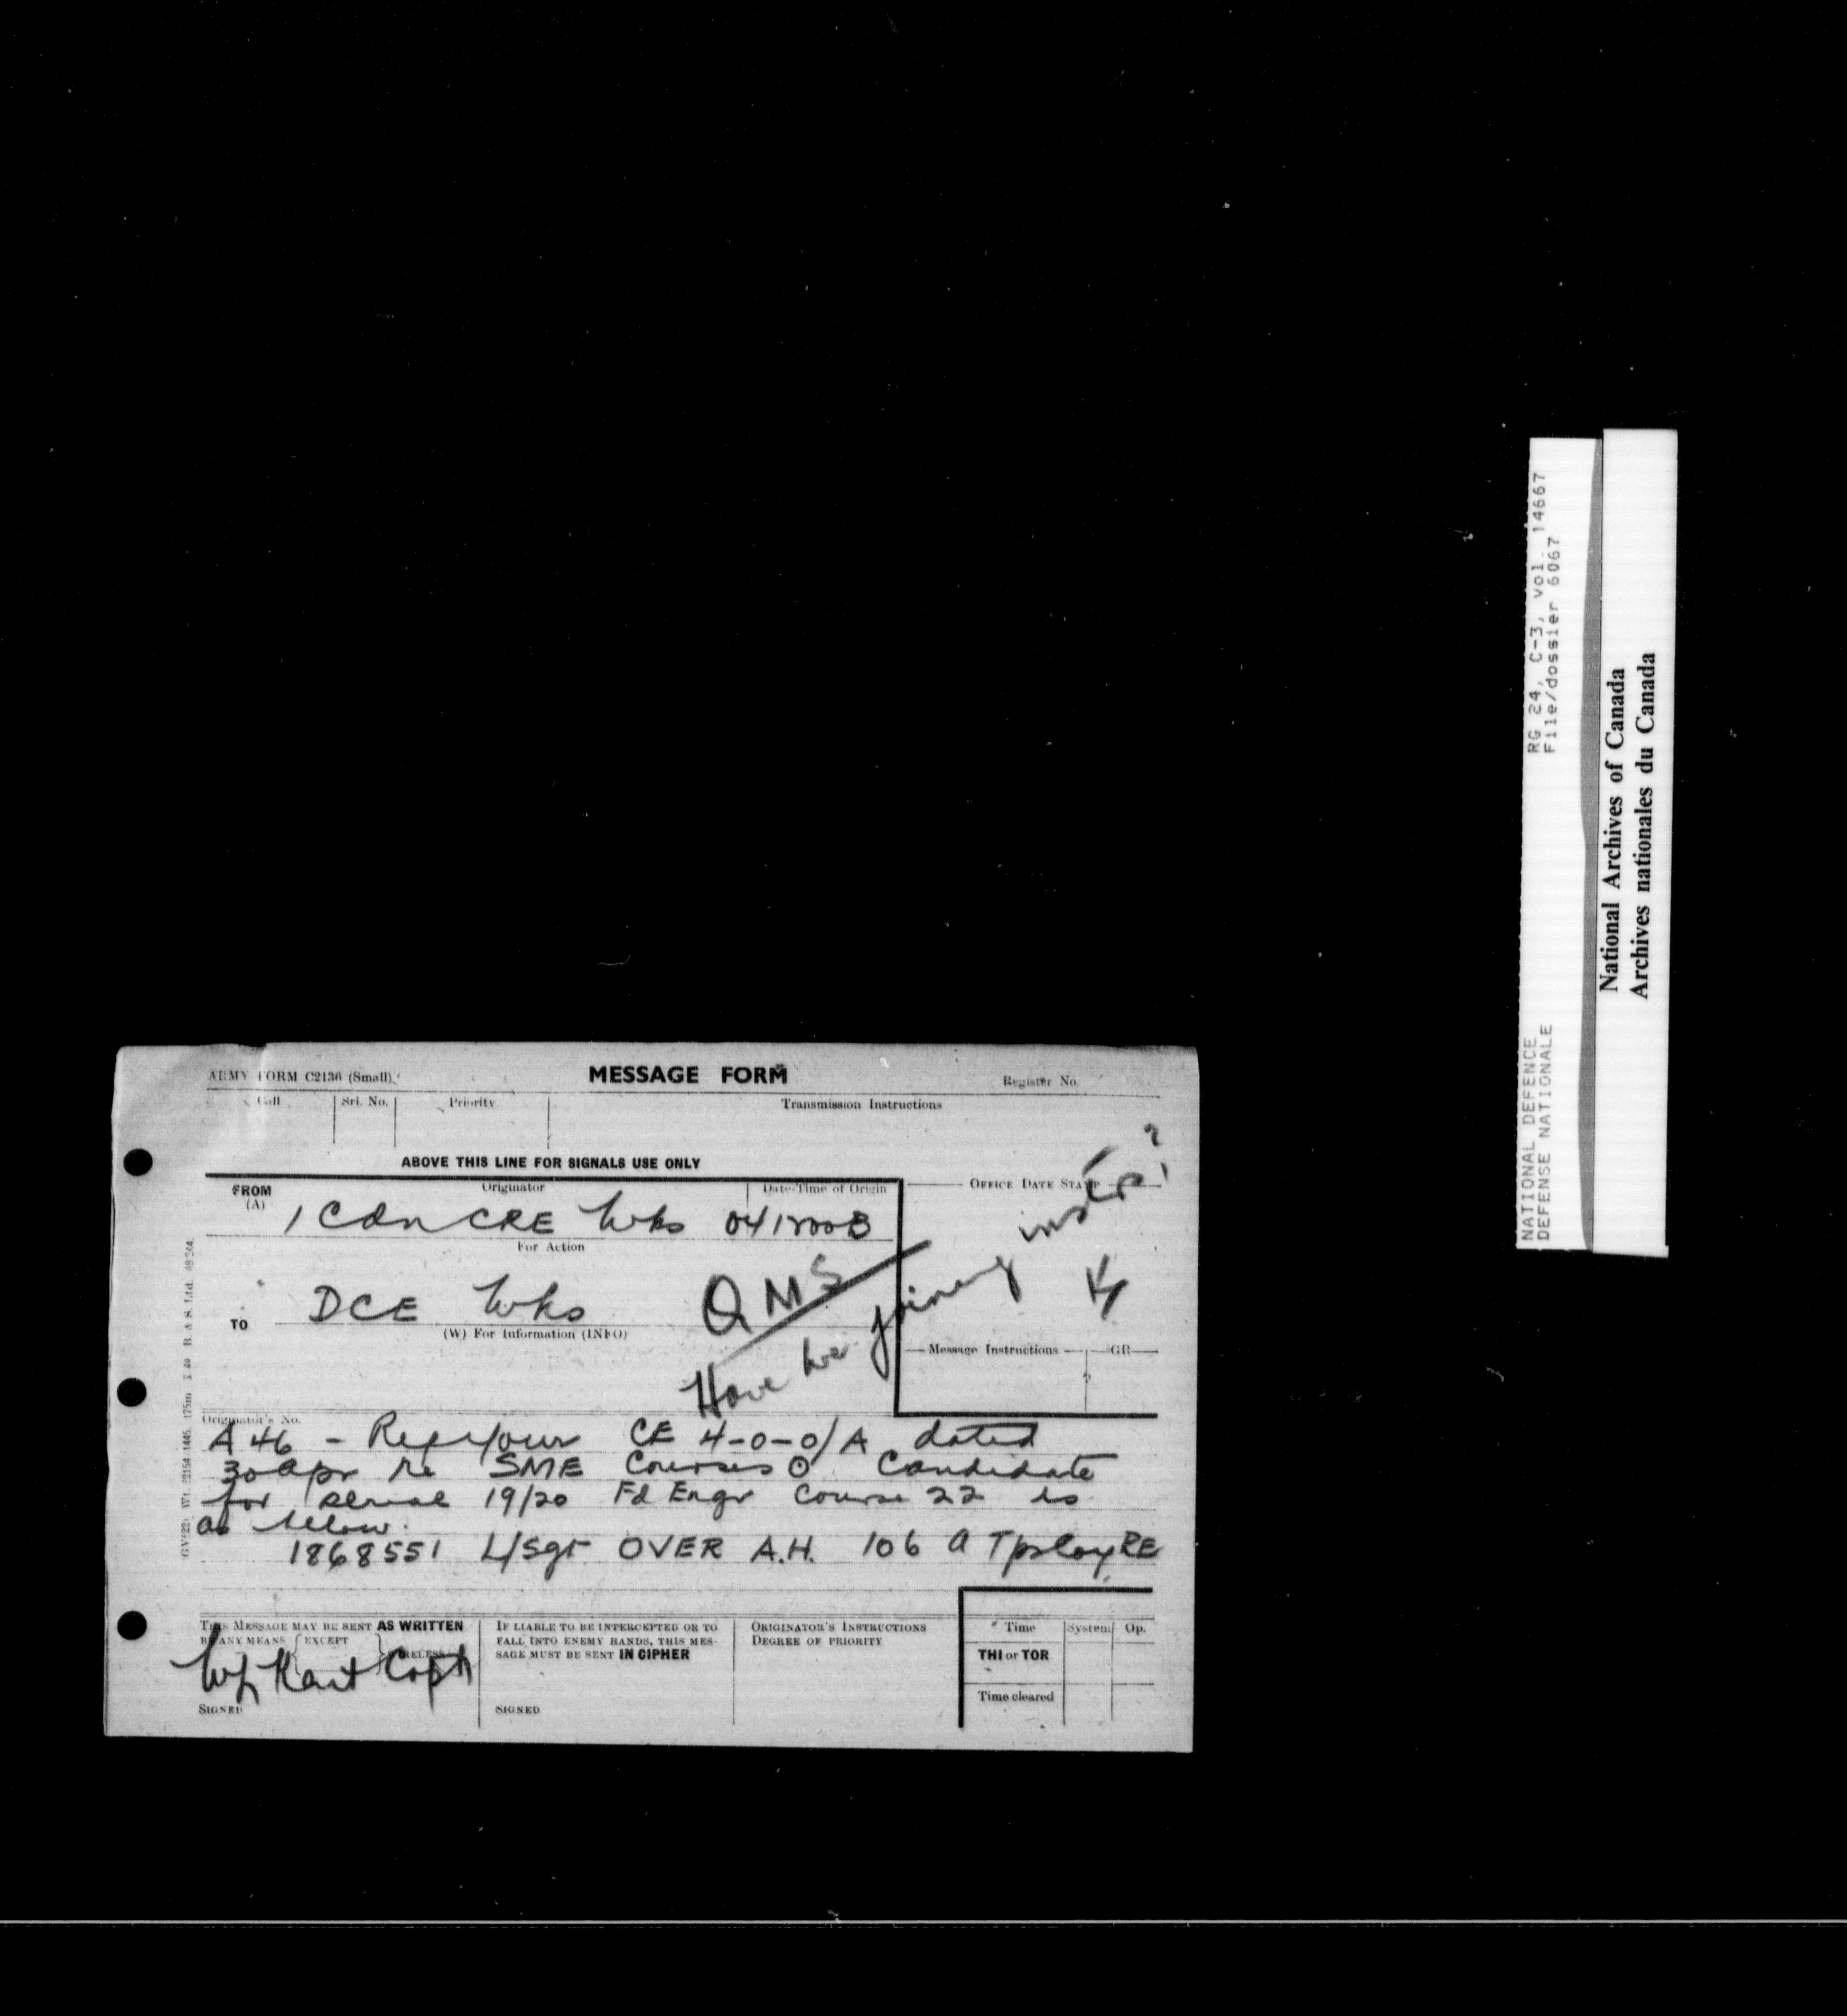 ARMY FORM C2136 (Small)
MESSAGE FORM
Register No.
Call
Srl. No.
Priority
Transmission Instructions
ABOVE THIS LINE FOR SIGNALS USE ONLY
FROM
(A)
Originator
Date-Time of Origin
OFFICE DATE STAMP
1 Cdn CRE Wks
For Action
TO
DCE Wks
QMS
Have we joining instrs?
(W) For Information (INFO)
Message Instructions
GR
Originator's No.
A 46 - Ref your CE 4-0-0/A dated
30 Apr re SME Courses O Candidate
for serial 19/20 Fd Engr Course 22 is
as below.
1868551 L/Sgt OVER A.H. 106 A Tps Coy RE
THIS MESSAGE MAY BE SENT AS WRITTEN
BY ANY MEANS {EXCEPT } WIRELESS
Kent Capt
SIGNED
IF LIABLE TO BE INTERCEPTED OR TO
FALL INTO ENEMY HANDS, THIS MES-
SAGE MUST BE SENT IN CIPHER
SIGNED
ORIGINATOR'S INSTRUCTIONS
DEGREE OF PRIORITY
Time
System
Op.
THI or TOR
Time cleared
RG 24, C-3, vol. 14667
File/dossier 6067
NATIONAL DEFENCE
DEFENSE NATIONALE
National Archives of Canada
Archives nationales du Canada